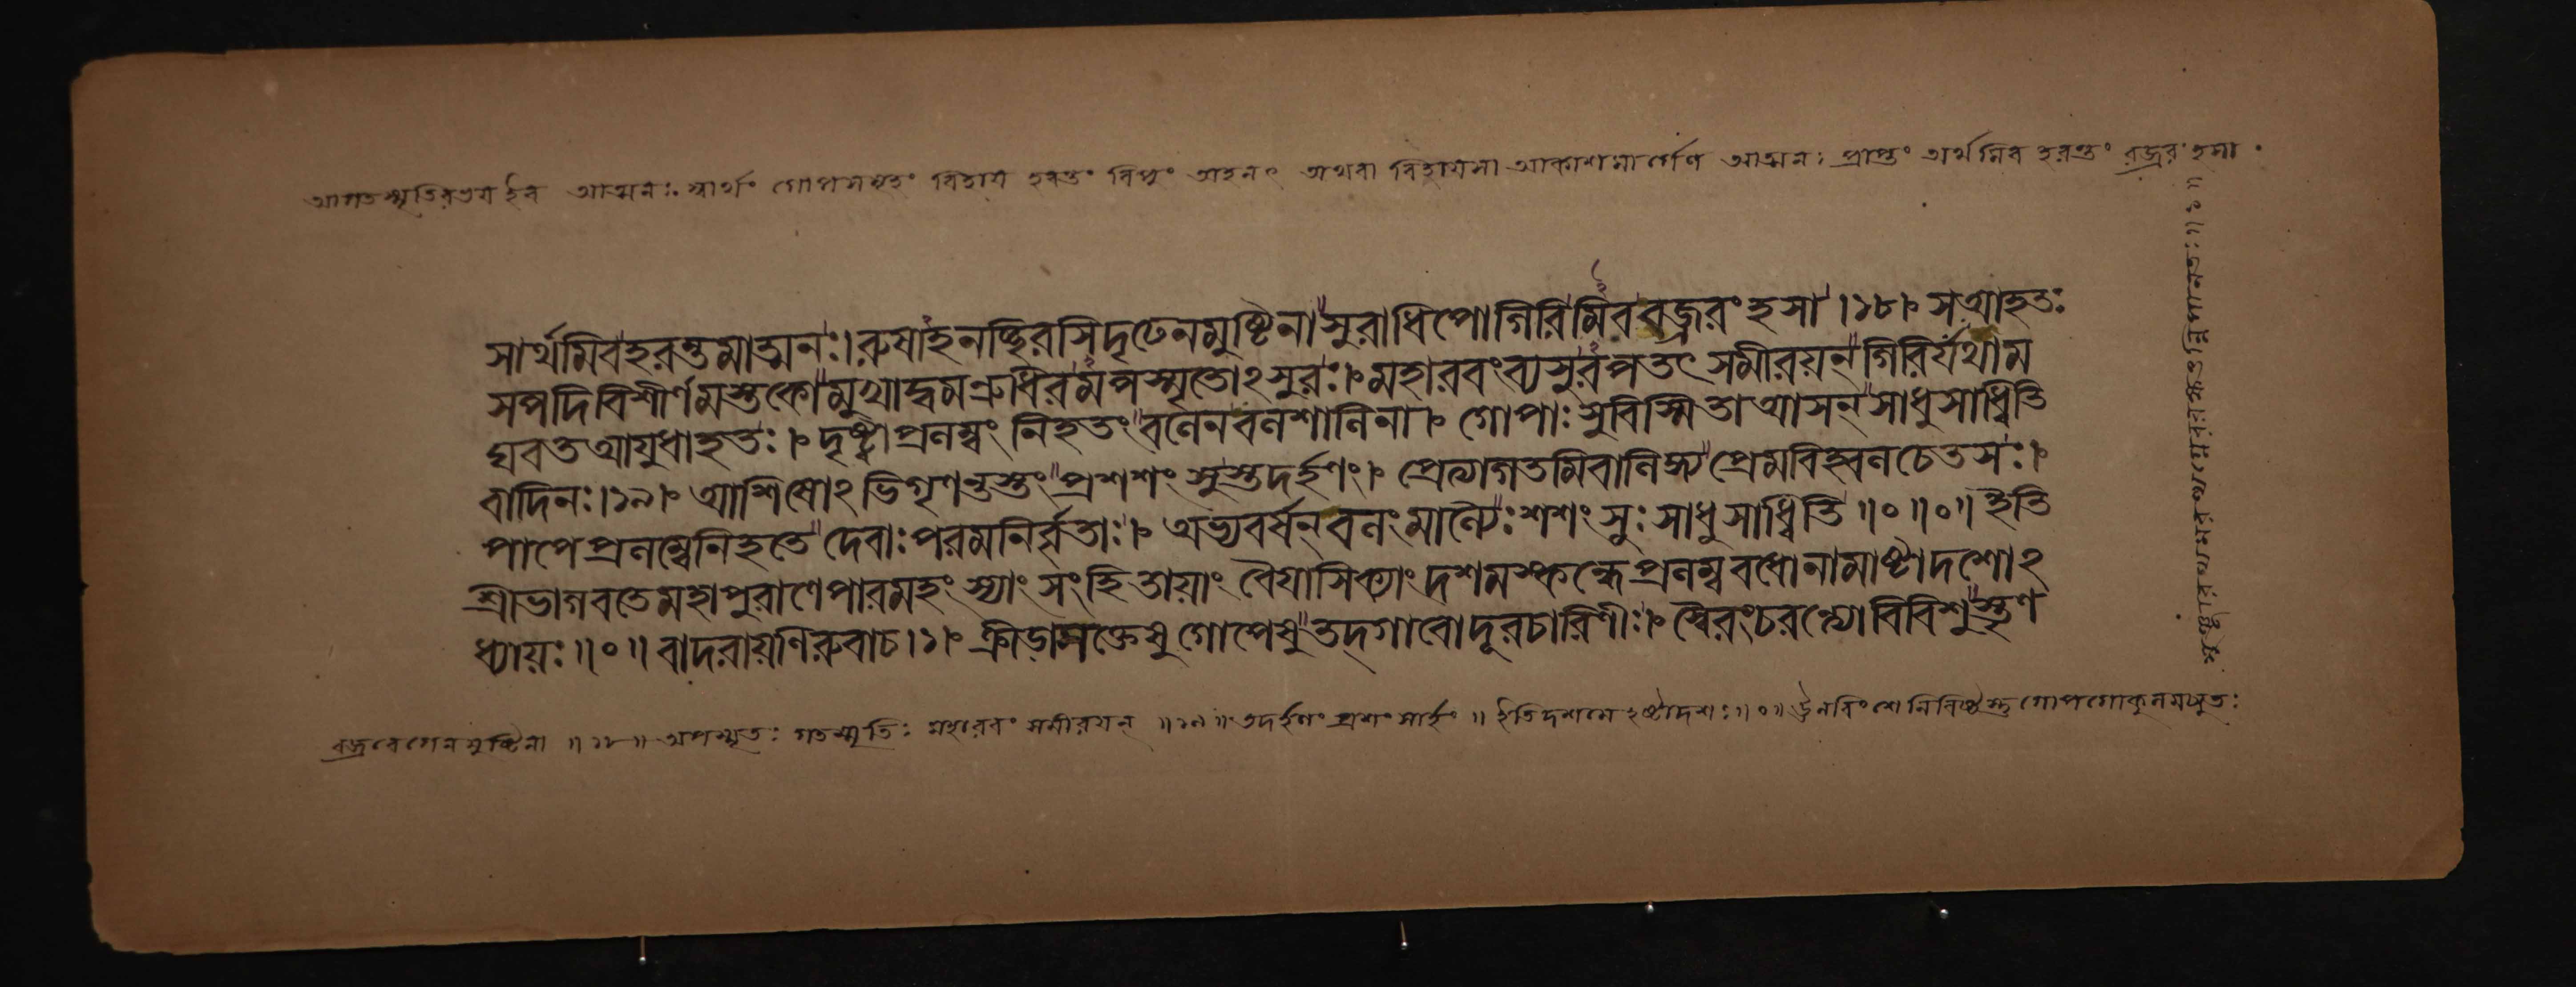 আগতস্মৃতিরভয ইব আত্মনঃ স্বার্থং গোপসমূহং বিহায হরন্তং রিপুং অহনৎ অথবা বিহাযসা আকাশমার্গেণ আত্মনঃ প্রাপ্তং অর্থমিব হরন্তং বজ্ররংহসা
সার্থমিবহরন্তমাত্মনঃ। রুষাহনচ্ছিরসিদৃঢেনমুষ্টিনা সুরাধিপোগিরিমিববজ্ররংহসা।১৮। সআহতঃ
সপদিবিশীর্ণমস্তকো মুখাদ্বমন্রুধিরমপস্মৃতোঽসুরঃ। মহারবংব্যসুরপতৎ সমীরয়ন্ গিরির্যথাম
ঘবতআয়ুধাহতঃ। দৃষ্ট্বাপ্রলম্বং নিহতং বলেনবলশালিনা। গোপাঃ সুবিস্মিতাআসন্ সাধুসাধ্বিতি
বাদিনঃ।১৯। আশিষোঽভিগৃণন্তস্তং প্রশশংসুস্তদর্হণং। প্রেত্যাগতমিবালিঙ্গ্য প্রেমবিহ্বলচেতসঃ।
পাপেপ্রলম্বেনিহতে দেবাঃপরমনির্বৃতাঃ। অভ্যবর্ষন্ বলংমাল্যৈঃ শশংসুঃ সাধুসাধ্বিতি॥০॥০॥ ইতি
শ্রীভাগবতেমহাপুরাণেপারমহংস্যাং সংহিতায়াং বৈয়াসিক্যাং দশমস্কন্ধেপ্রলম্ববধোনামাষ্টাদশোঽ
ধ্যায়ঃ॥০॥ বাদরায়ণিরুবাচ।১। ক্রীডাসক্তেষুগোপেষু তদ্গাবোদূরচারিণীঃ। স্বৈরংচরন্ত্যোবিবিশুস্তৃণ
বজ্রবেগেনমুষ্টিনা॥১৮॥ অপস্মৃতঃ গতস্মৃতিঃ মহারবং সমীরযন্॥১৯॥ তদর্হণং প্রশংসার্হং॥ ইতিদশমে ঽষ্টাদশঃ॥০॥ ঊনবিংশে